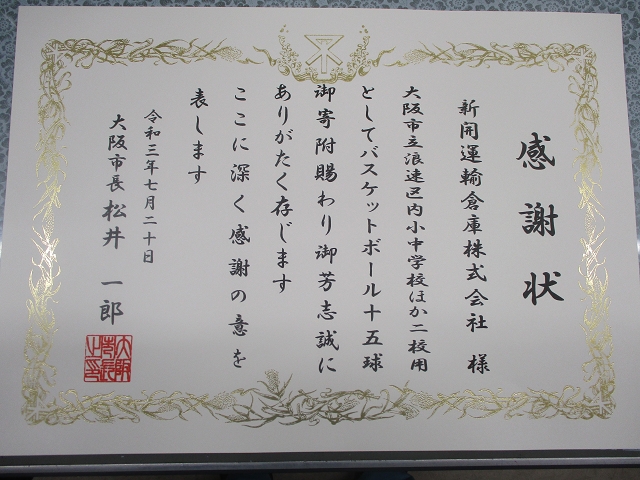 感謝状
新開運輸倉庫株式会社 様
大阪市立浪速区内小中学校ほか二校用
としてバスケットボール十五球
御寄附賜わり御芳志誠に
ありがたく存じます
ここに深く感謝の意を
表します
令和三年七月二十日
大阪市長 松井 一郎